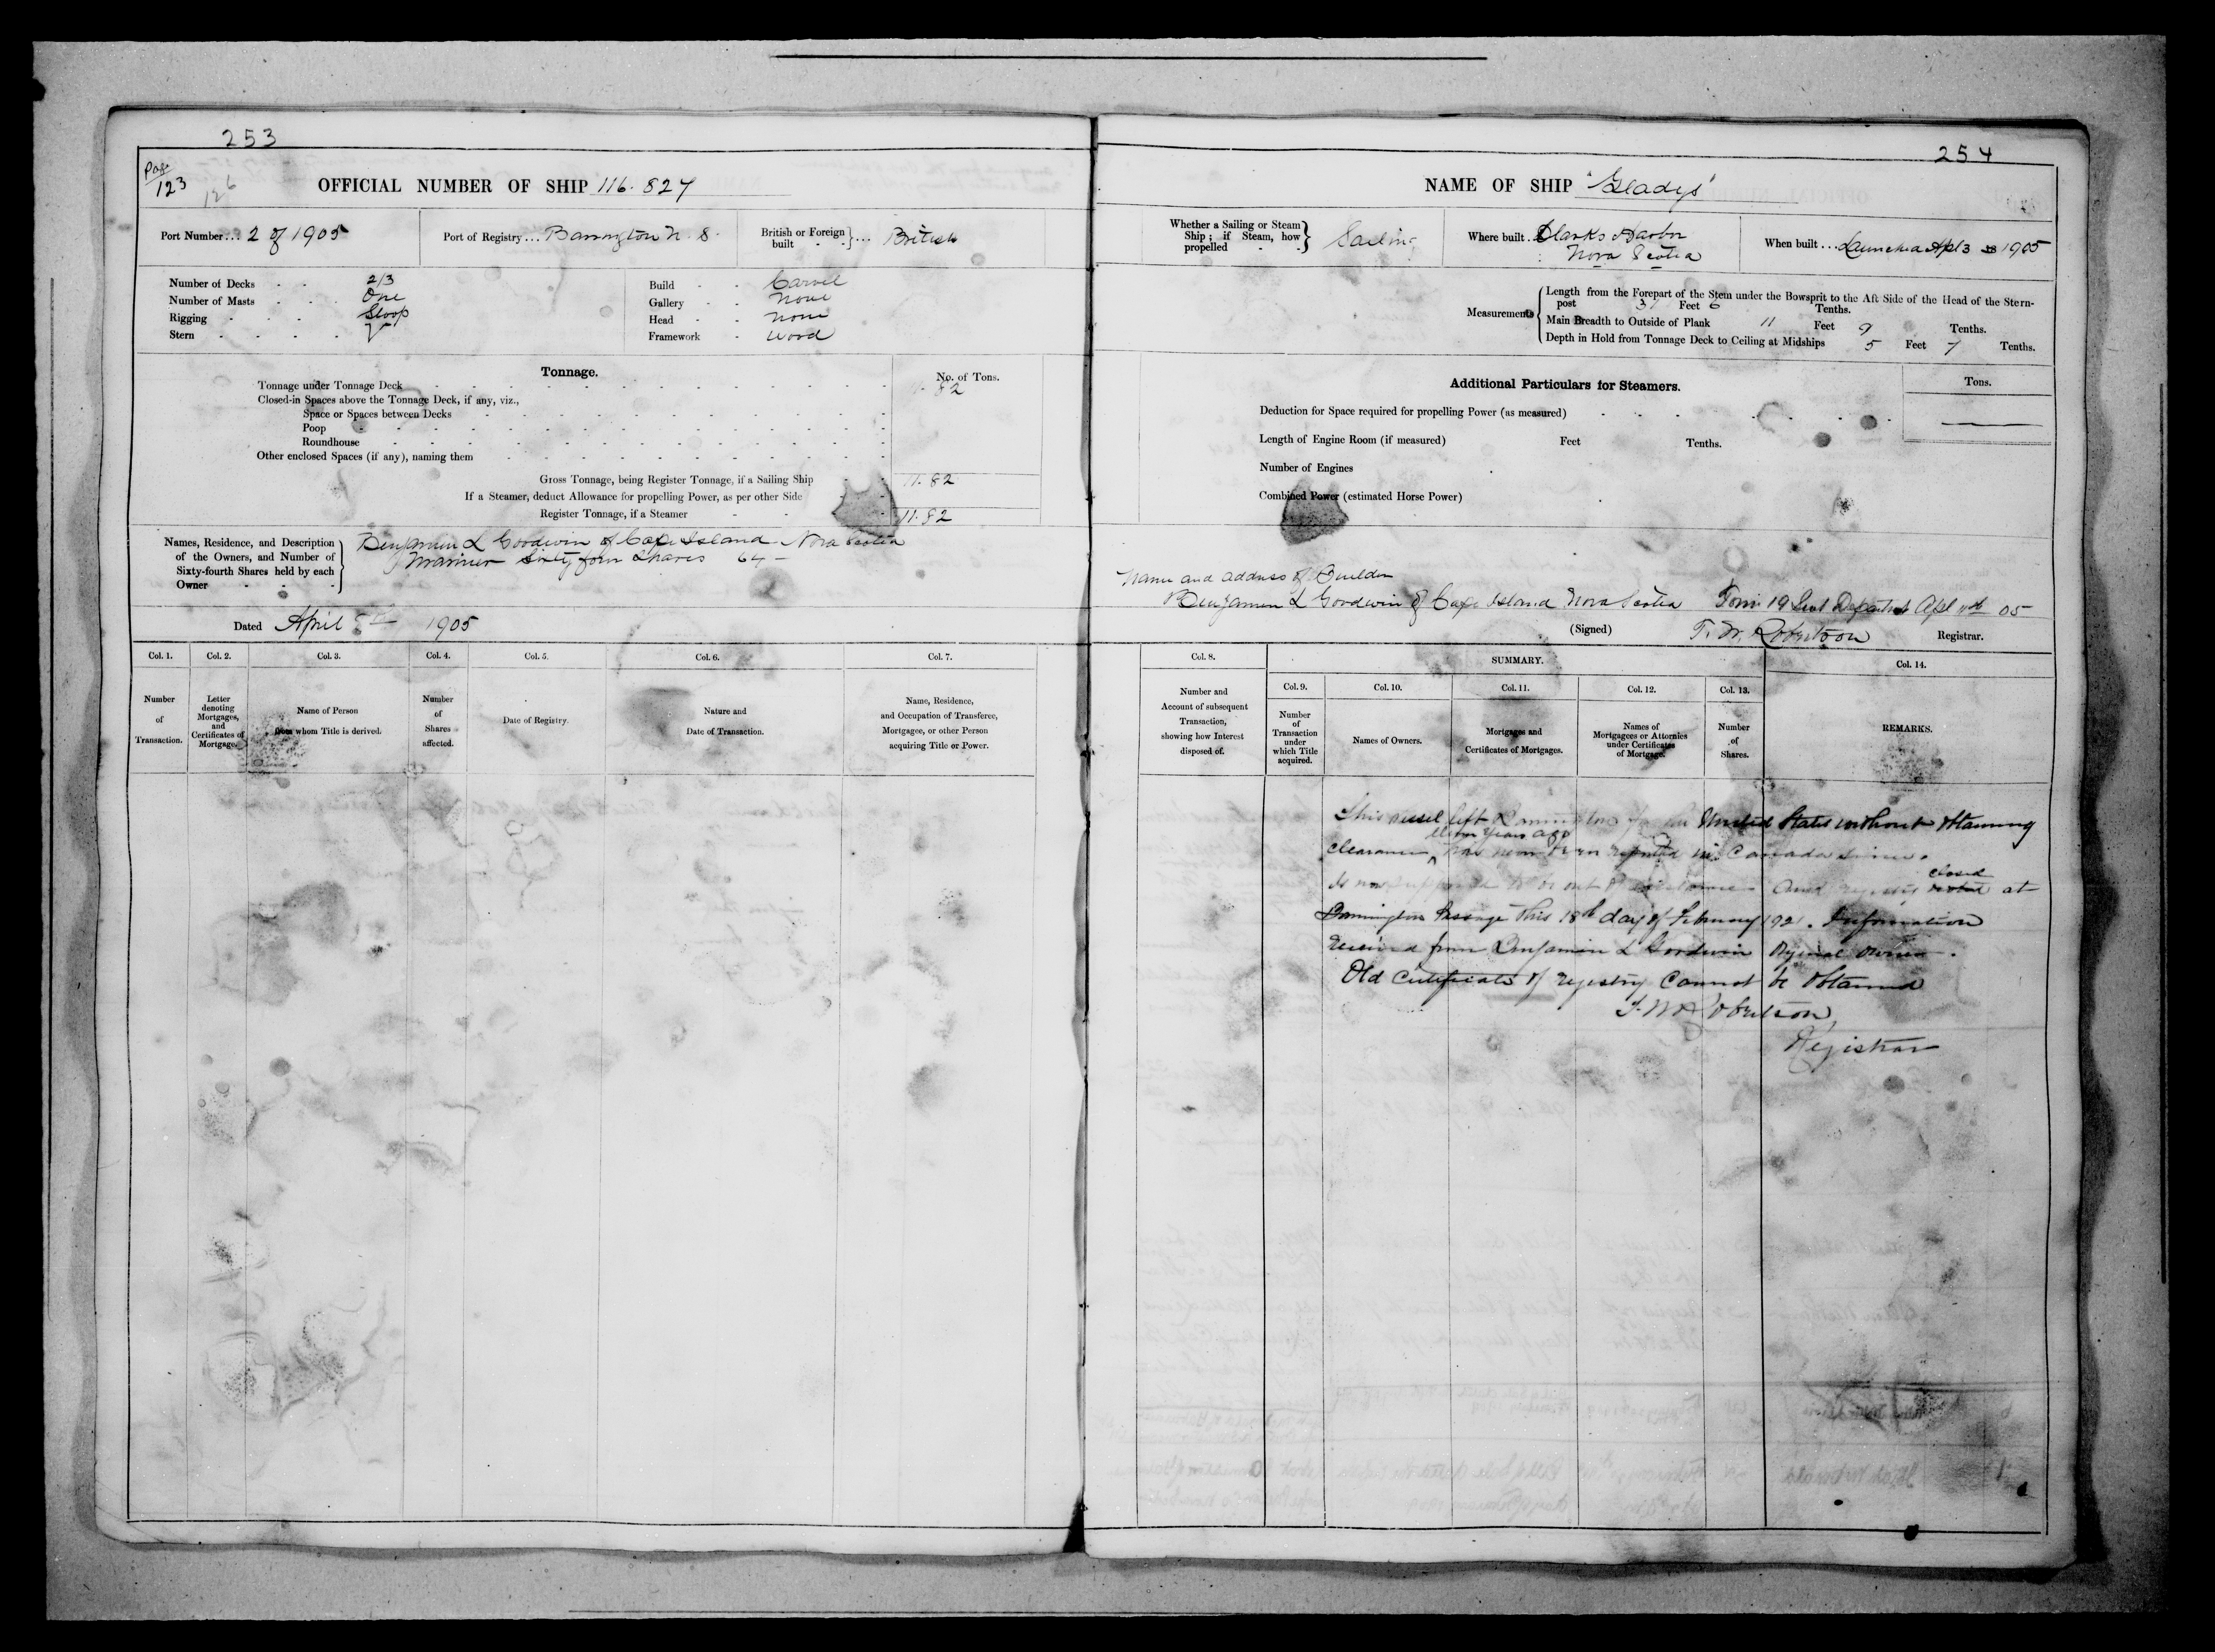 253
254
Page
123
126
OFFICIAL NUMBER OF SHIP 116.827
Port Number... 2 of 1905
Port of Registry... Barrington N. S.
British or Foreign built }... British
Number of Decks 2/3
Number of Masts One
Rigging Sloop
Stern
Build Carvel
Gallery None
Head None
Framework Wood
Tonnage.
No. of Tons.
Tonnage under Tonnage Deck 11.82
Closed-in Spaces above the Tonnage Deck, if any, viz.,
Space or Spaces between Decks
Poop
Roundhouse
Other enclosed Spaces (if any), naming them
Gross Tonnage, being Register Tonnage, if a Sailing Ship 11.82
If a Steamer, deduct Allowance for propelling Power, as per other Side
Register Tonnage, if a Steamer 11.82
Names, Residence, and Description
of the Owners, and Number of
Sixty-fourth Shares held by each
Owner
Benjamin L Goodwin of Cape Island Nova Scotia
Mariner Sixty four Shares 64 —
Dated April 1905
Col. 1.
Number
of
Transaction.
Col. 2.
Letter
denoting
Mortgages,
and
Certificates of
Mortgage.
Col. 3.
Name of Person
from whom Title is derived.
Col. 4.
Number
of
Shares
affected.
Col. 5.
Date of Registry.
Col. 6.
Nature and
Date of Transaction.
Col. 7.
Name, Residence,
and Occupation of Transferee,
Mortgage, or other Person
acquiring Title or Power.
NAME OF SHIP "Gladys"
Whether a Sailing or Steam
Ship; if Steam, how
propelled
Sailing
Where built Clarks Harbor
Nova Scotia
When built... Launched Apl 3 1905
Measurements
Length from the Forepart of the Stem under the Bowsprit to the Aft Side of the Head of the Stern-
post 37 Feet 6 Tenths.
Main Breadth to Outside of Plank 11 Feet 9 Tenths.
Depth in Hold from Tonnage Deck to Ceiling at Midships 5 Feet 7 Tenths.
Additional Particulars for Steamers.
Tons.
Deduction for Space required for propelling Power (as measured)
Length of Engine Room (if measured) Feet Tenths.
Number of Engines
Combined Power (estimated Horse Power)
Name and address of Builder
Benjamin L Goodwin of Cape Island Nova Scotia Form 19 Sent Department Apl 05
(Signed) T. W. Robertson Registrar.
Col. 8.
Number and
Account of subsequent
Transaction,
showing how Interest
disposed of.
SUMMARY.
Col. 9.
Number
of
Transaction
under
which Title
acquired.
Col. 10.
Names of Owners.
Col. 11.
Mortgages and
Certificates of Mortgages.
Col. 12.
Names of
Mortgagees or Attornies
under Certificates
of Mortgage.
Col. 13.
Number
of
Shares.
Col. 14.
REMARKS.
This vessel left Barrington for the United States without obtaining
eleven years ago
clearance has never been reported in Canada since.
Is now supposed to be out of existence and registry closed at
Barrington Passage this 18th day of February 1921. Information
received from Benjamin L Goodwin Original owner.
Old Certificate of registry cannot be obtained
T. W. Robertson
Registrar